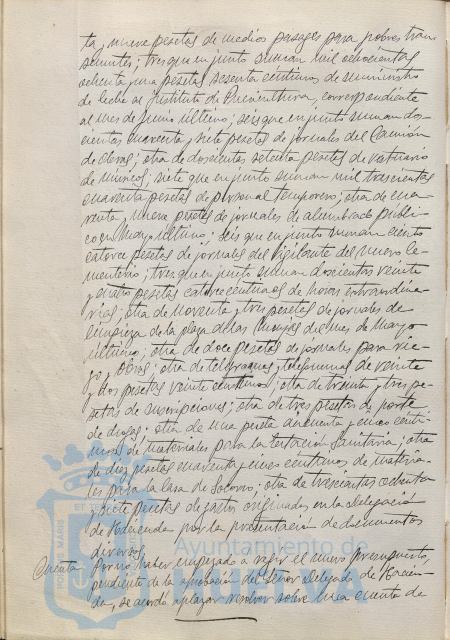 ta, nueve pesetas de medios pasages para pobres tran-
seuntes; tres que en junto suman mil ochocientas
ochenta una pesetas sesenta centimos de suministro
de leche al Instituto de Puericultura, correspondiente
al mes de Junio ultimo; seis que en junto suman dos-
cientas cuarenta y siete pesetas de jornales del Camión
de obras; otra de doscientas setenta pesetas de vestuario
de músicos; siete que en junto suman mil trescientas
cuarenta pesetas de personal temporero; otra de cua-
renta y nueve pesetas de jornales de alumbrado publi-
co en Mayo ultimo; seis que en junto suman ciento
catorce pesetas de jornales del Vigilante del nuevo Ce-
menterio; tres que en junto suman doscientas veinte
y cuatro pesetas catorce centimos de horas extraordina-
rias; otra de noventa y tres pesetas de jornales de
limpieza de la playa de las Monjas del mes de Mayo
ultimo; otra de doce pesetas de jornales para rie-
go y obras; otra de telegramas y telefonemas de veinte
y dos pesetas veinte centimos; otra de treinta y tres pe-
setas de suscripciones; otra de tres pesetas de porte
de drogas; otra de una peseta cincuenta y cinco centi-
mos de materiales para la Estación Sanitaria; otra
de diez pesetas cuarenta y cinco centimos de materia-
les para la Casa de Socorro; otra de trescientas ochenta
y siete pesetas de gastos originados en la Delegación
de Hacienda por la presentación de documentos
diversos.
Cuenta Por no haber empezado a regir el nuevo presupuesto,
pendiente de la aprobación del Señor Delegado de Hacien-
da, se acordó aplazar resolver sobre una cuenta de
Ayuntamiento de